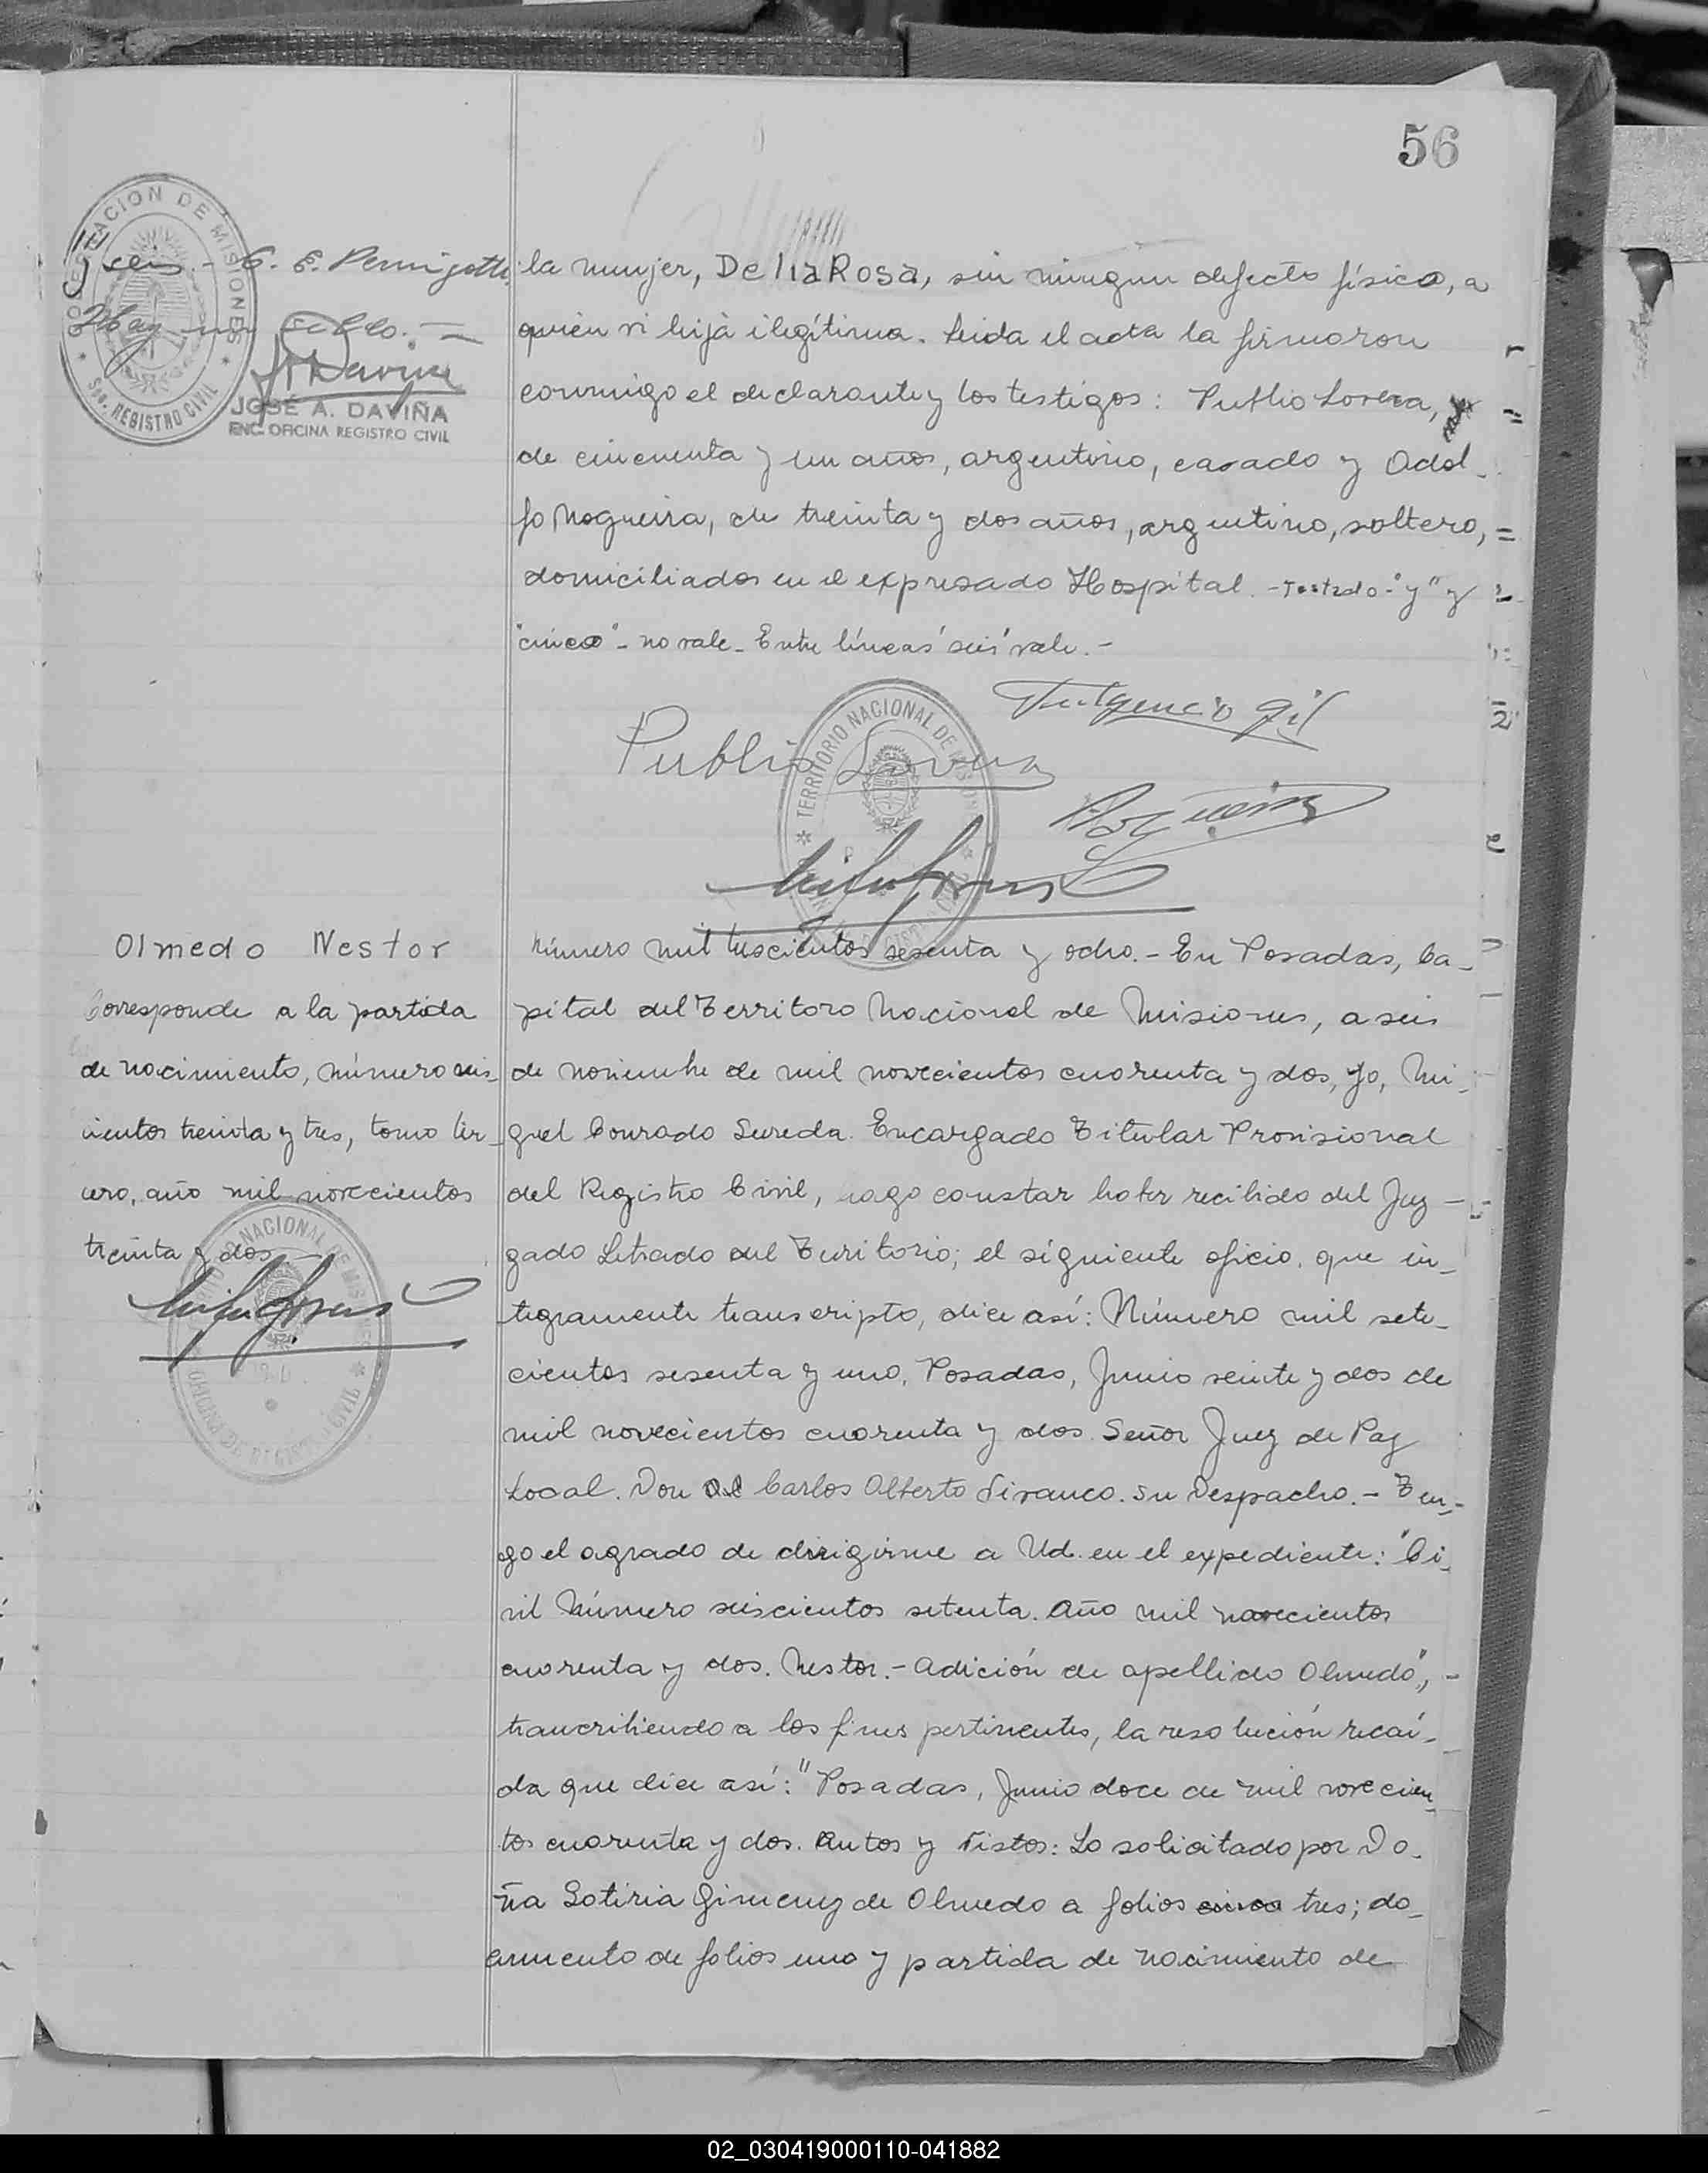 56
GOBERNACION DE MISIONES
Sec. REGISTRO CIVIL
Juez.- E. E. Pernigotti.
Hay un sello.-
JOSÉ A. DAVIÑA
ENC. OFICINA REGISTRO CIVIL
la mujer, Delia Rosa, sin ningun defecto físico, a
quien vi hija ilegítima. Leida el acta la firmaron
conmigo el declarante y los testigos: Publio Lovera,
de cincuenta y un años, argentino, casado y Adol-
fo Nogueira, de treinta y dos años, argentino, soltero, =
domiciliados en el expresado Hospital. - Testado - "y" y
"cinco" - no vale - Entre líneas "seis" vale. -
Fulgencio Gil
Publio Lovera
Nogueira
TERRITORIO NACIONAL DE MISIONES
Olmedo Nestor
Corresponde a la partida
de nacimiento, número seis-
cientos treinta y tres, tomo ter-
cero, año mil novecientos
treinta y dos -
NACIONAL DE MISIONES
OFICINA DE REGISTRO CIVIL
Número mil trescientos sesenta y ocho. - En Posadas, Ca-
pital del Territoro Nacional de Misiones, a seis
de noviembre de mil novecientos cuarenta y dos, yo, Mi-
guel Conrado Sureda. Encargado Titular Provisional
del Registro Civil, hago constar haber recibido del Juz-
gado Letrado del Territorio; el siguiente oficio, que in-
tegramente transcripto, dice así: Número mil sete-
cientos sesenta y uno, Posadas, Junio veinte y dos de
mil novecientos cuarenta y dos. Señor Juez de Paz
Local. Don Carlos Alberto Su Despacho. - Ten-
go el agrado de dirigirme a Ud. en el expediente: "Ci-
vil Número seiscientos setenta. Año mil novecientos
cuarenta y dos. Nestor. - Adición de apellido Olmedo", -
trancribiendo a los fines pertinentes, la resolución recaí-
da que dice así: "Posadas, Junio doce de mil novecien-
tos cuarenta y dos. Autos y Vistos: Lo solicitado por Do-
ña Sotiria Gimenez de Olmedo a folios cinco tres; do-
cumento de folios uno y partida de nacimiento de
02_030419000110-041882